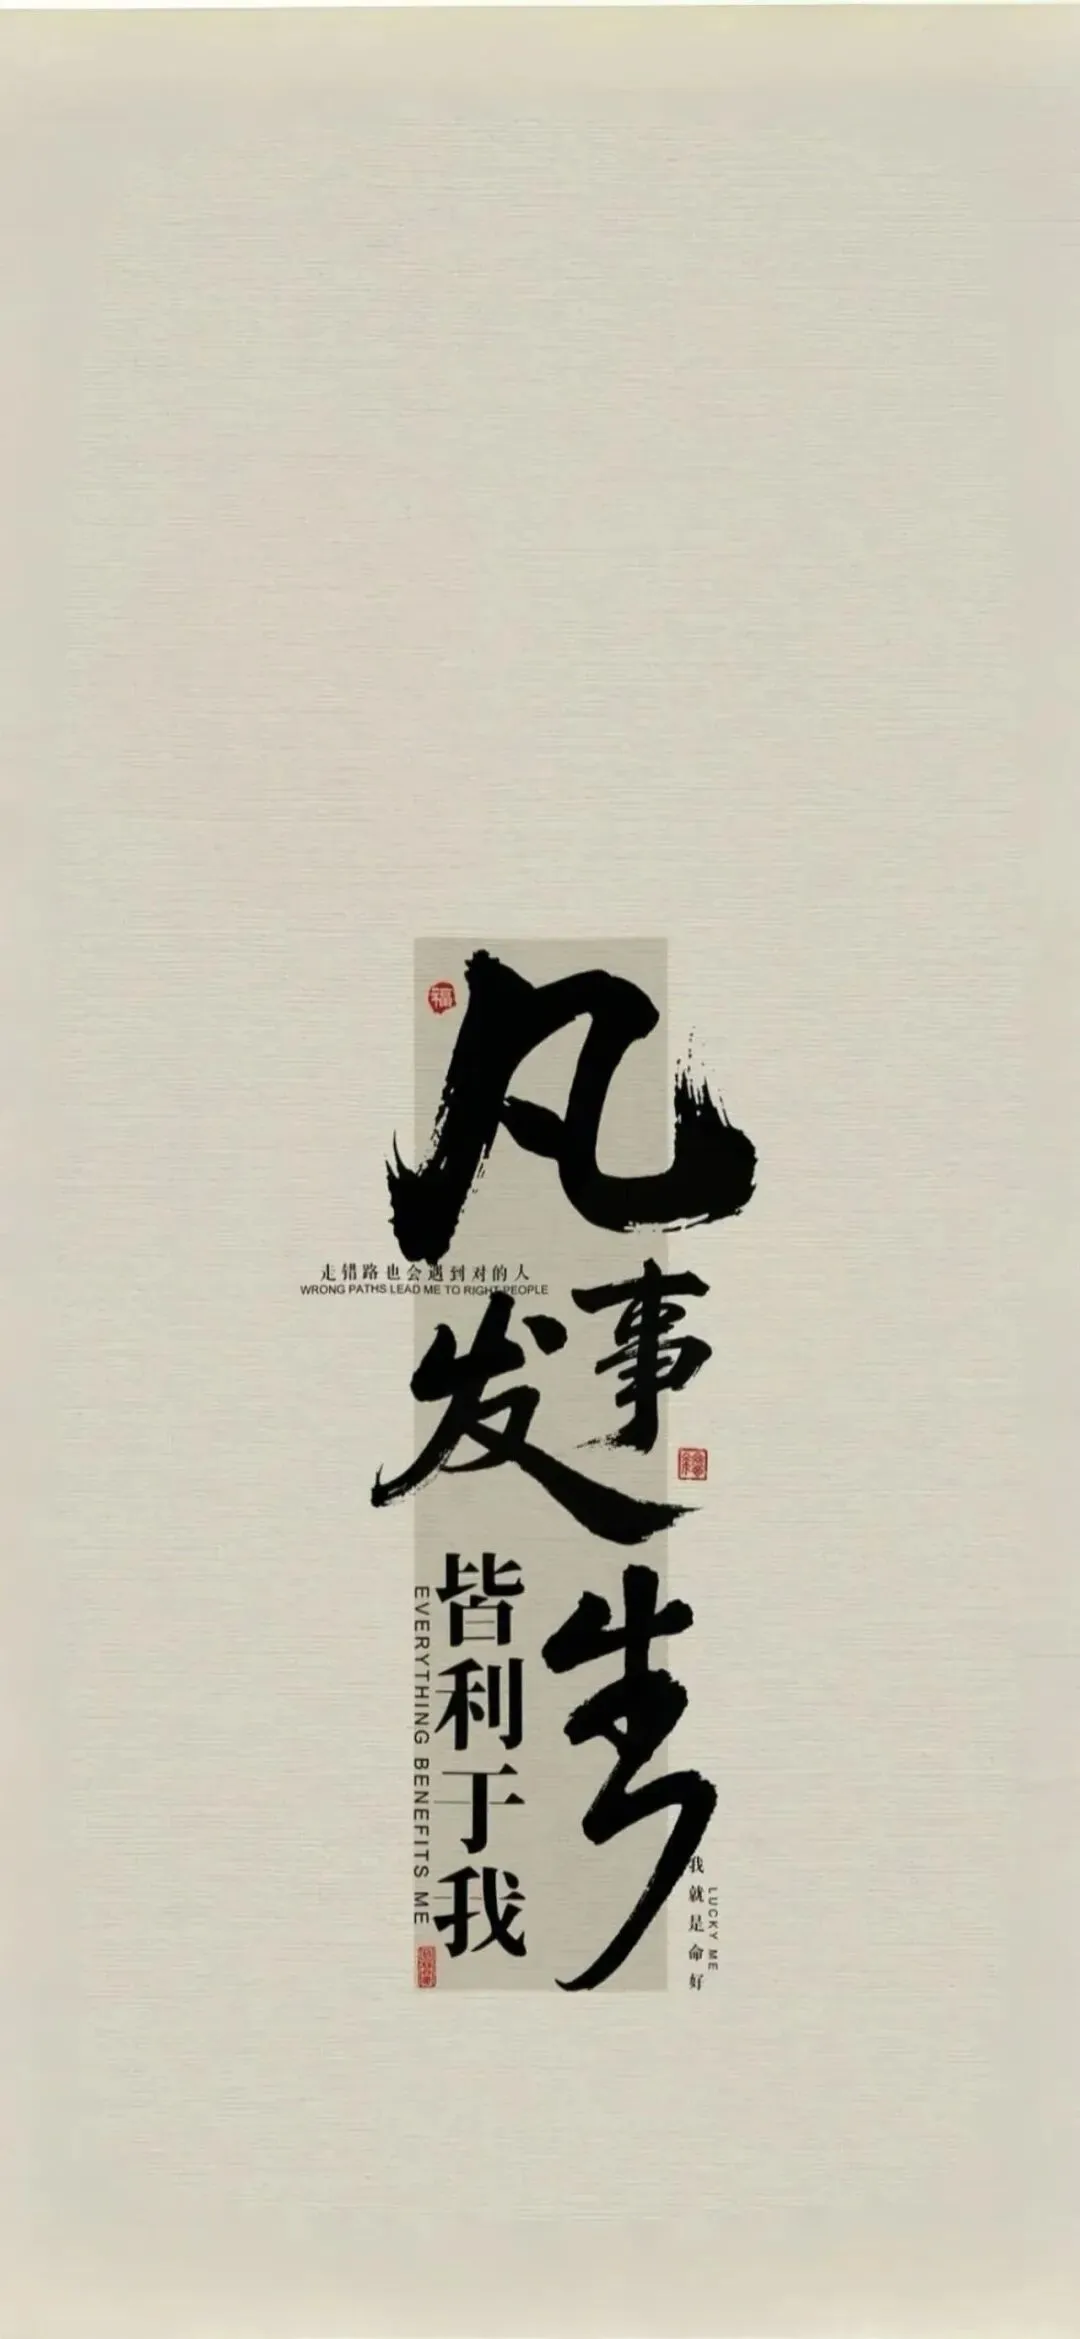 福
凡
走错路也会遇到对的人
WRONG PATHS LEAD ME TO RIGHT PEOPLE
事
发
生
皆利于我
EVERYTHING BENEFITS ME
我就是命好
LUCKY ME